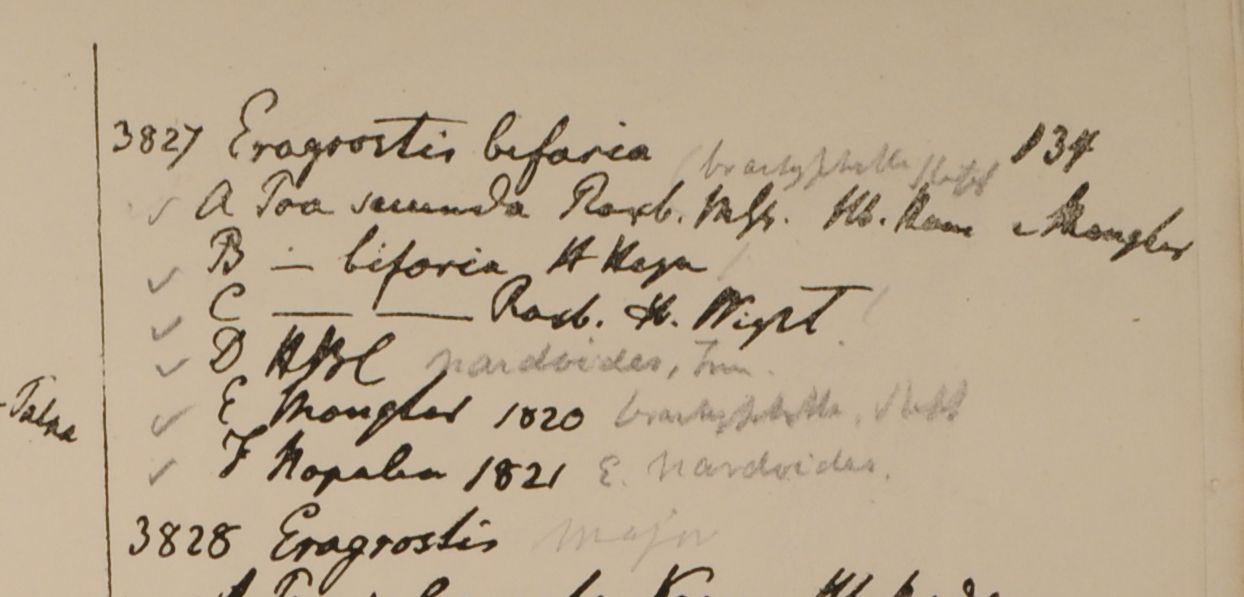 3827 Eragrostis bifaria (brachyphylla Stapf 134
A Poa secunda Roxb. Mss. Hb. Ham e Mongher
B — bifaria H Heyn
C — — Roxb. H. Wight
D HBC nardoides, Trin.
E Mongher 1820 brachyphylla, Stapf
-Talna
F Napalia 1821 E. nardoides.
3828 Eragrostis major